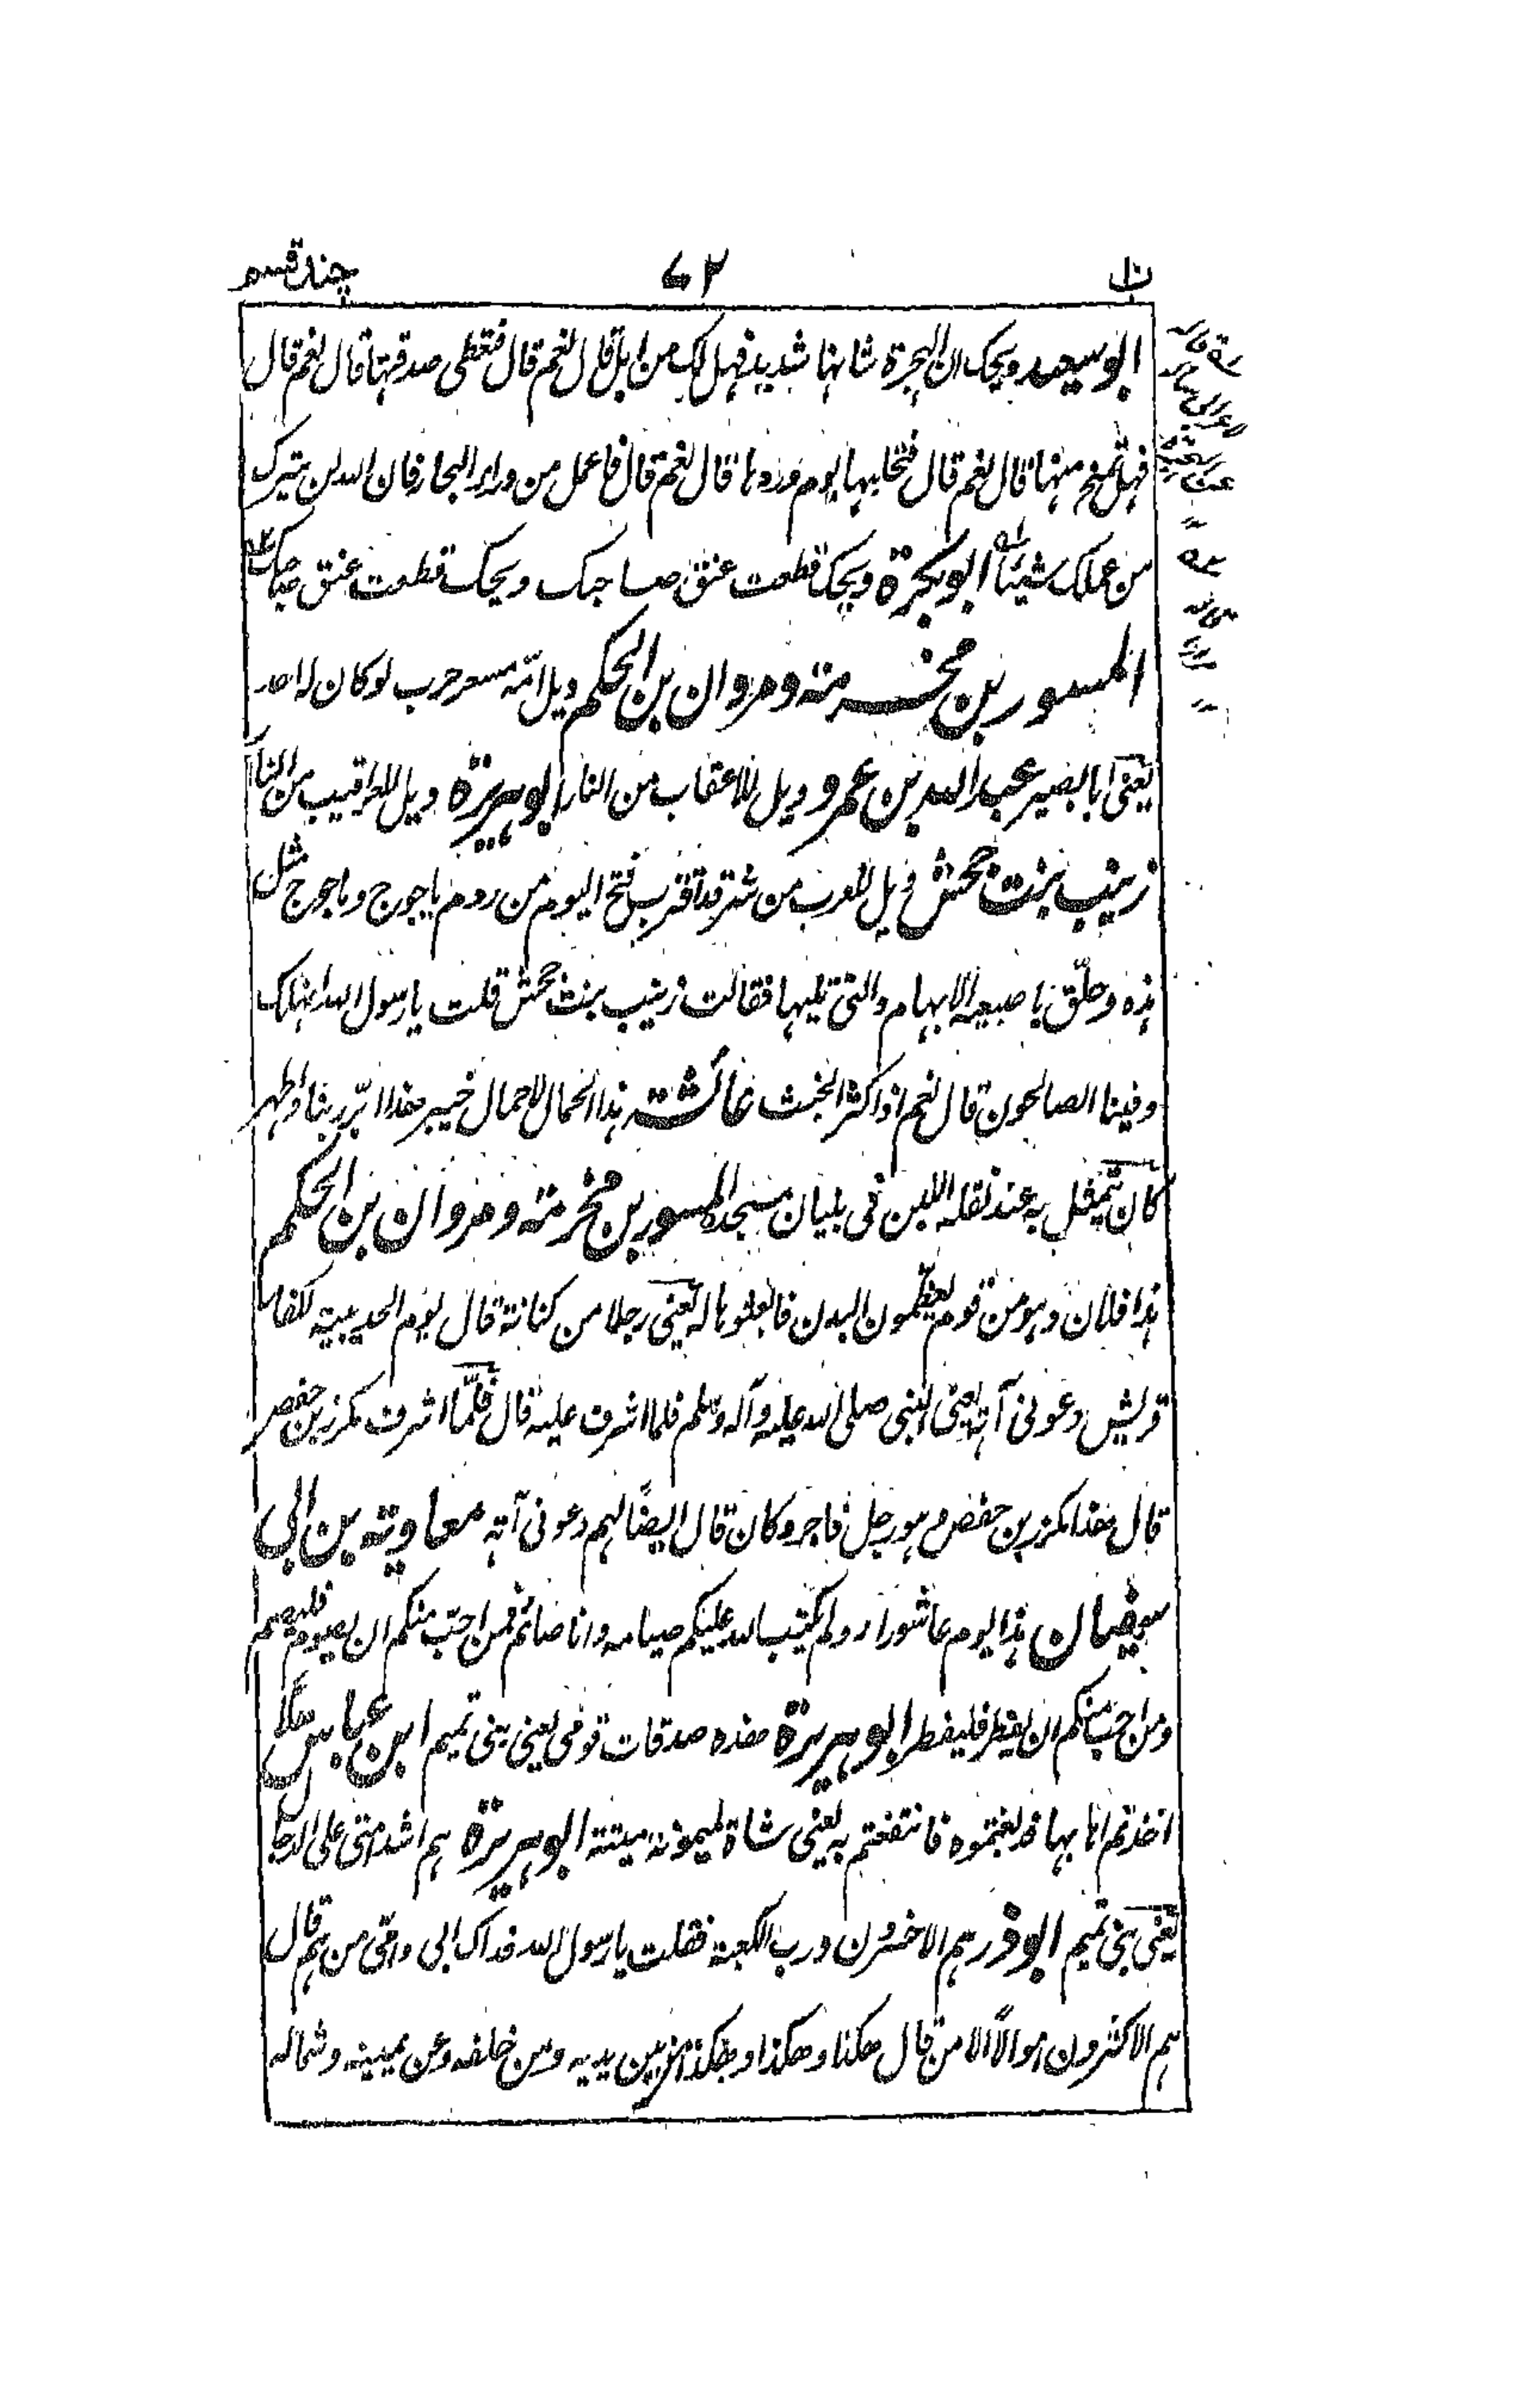 چند قسم
۷۲
ابو سعيد ويحك ان الهجرة شانها شديد فهل لك من ابل قال نعم قال فتعطى صدقتها قال نعم قال
فهل تمنح منها قال نعم قال فتحلبها يوم وردها قال نعم قال فاعمل من وراء البحار فان الله لن يترك
من عملك شيئا ابو بكرة ويحك قطعت عنق صاحبك ويحك قطعت عنق صاحبك
المسور بن مخرمة ومروان بن الحكم ويل امّه مسعر حرب لو كان له احد
يعنى ابا بصير عبد الله بن عمرو ويل للاعقاب من النار ابو هريرة ويل للعراقيب من النار
زينب بنت جحش ويل للعرب من شر قد اقترب فتح اليوم من ردم ياجوج وماجوج مثل
هذه وحلّق باصبعيه الابهام والتى تليها فقالت زينب بنت جحش قلت يا رسول الله انهلك
وفينا الصالحون قال نعم اذا كثر الخبث عائشة هذا الحمال لا حمال خيبر هذا ابرّ ربنا واطهر
كان يتمثل به عند نقله اللبن فى بنيان مسجده المسور بن مخرمة ومروان بن الحكم
هذا فلان وهو من قوم يعظّمون البدن فابعثوها له يعنى رجلا من كنانة قال يوم الحديبية لكفار
قريش دعونى آته يعنى النبى صلى الله عليه وآله وسلم فلما اشرف عليه قال فلمّا اشرف مكرز بن حفص
قال هذا مكرز بن حفص وهو رجل فاجر وكان قال ايضًا لهم دعونى آته معاوية بن ابى
سفيان هذا يوم عاشوراء ولم يكتب الله عليكم صيامه وانا صائم فمن احبّ منكم ان يصوم فليصم
ومن احب منكم ان يفطر فليفطر ابو هريرة هذه صدقات قومى يعنى بنى تميم ابن عباس هلّا
اخذتم اهابها فدبغتموه فانتفعتم به يعنى شاة لميمونة ميتة ابو هريرة هم اشد امتى على الدجال
يعنى بنى تميم ابو ذر هم الاخسرون ورب الكعبة فقلت يا رسول الله فداك ابى وامّى من هم قال
هم الاكثرون اموالًا الا من قال هكذا وهكذا وهكذا من بين يديه ومن خلفه وعن يمينه وشماله